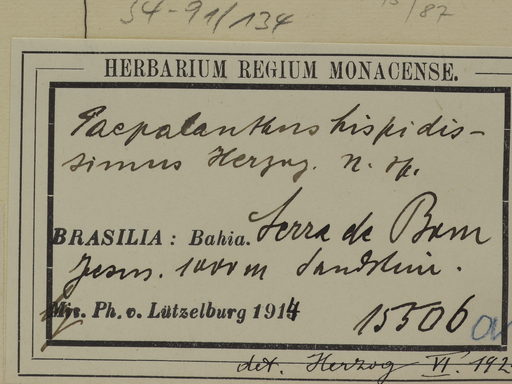 54-91/134
15/87
HERBARIUM REGIUM MONACENSE.
Paepalanthus hispidis-
simus Herzog. n. sp.
BRASILIA: Bahia. Serra de Bom
Jesus. 1000 m Sandstein.
Ph. v. Lützelburg 1914
15506
det. Herzog VI. 192